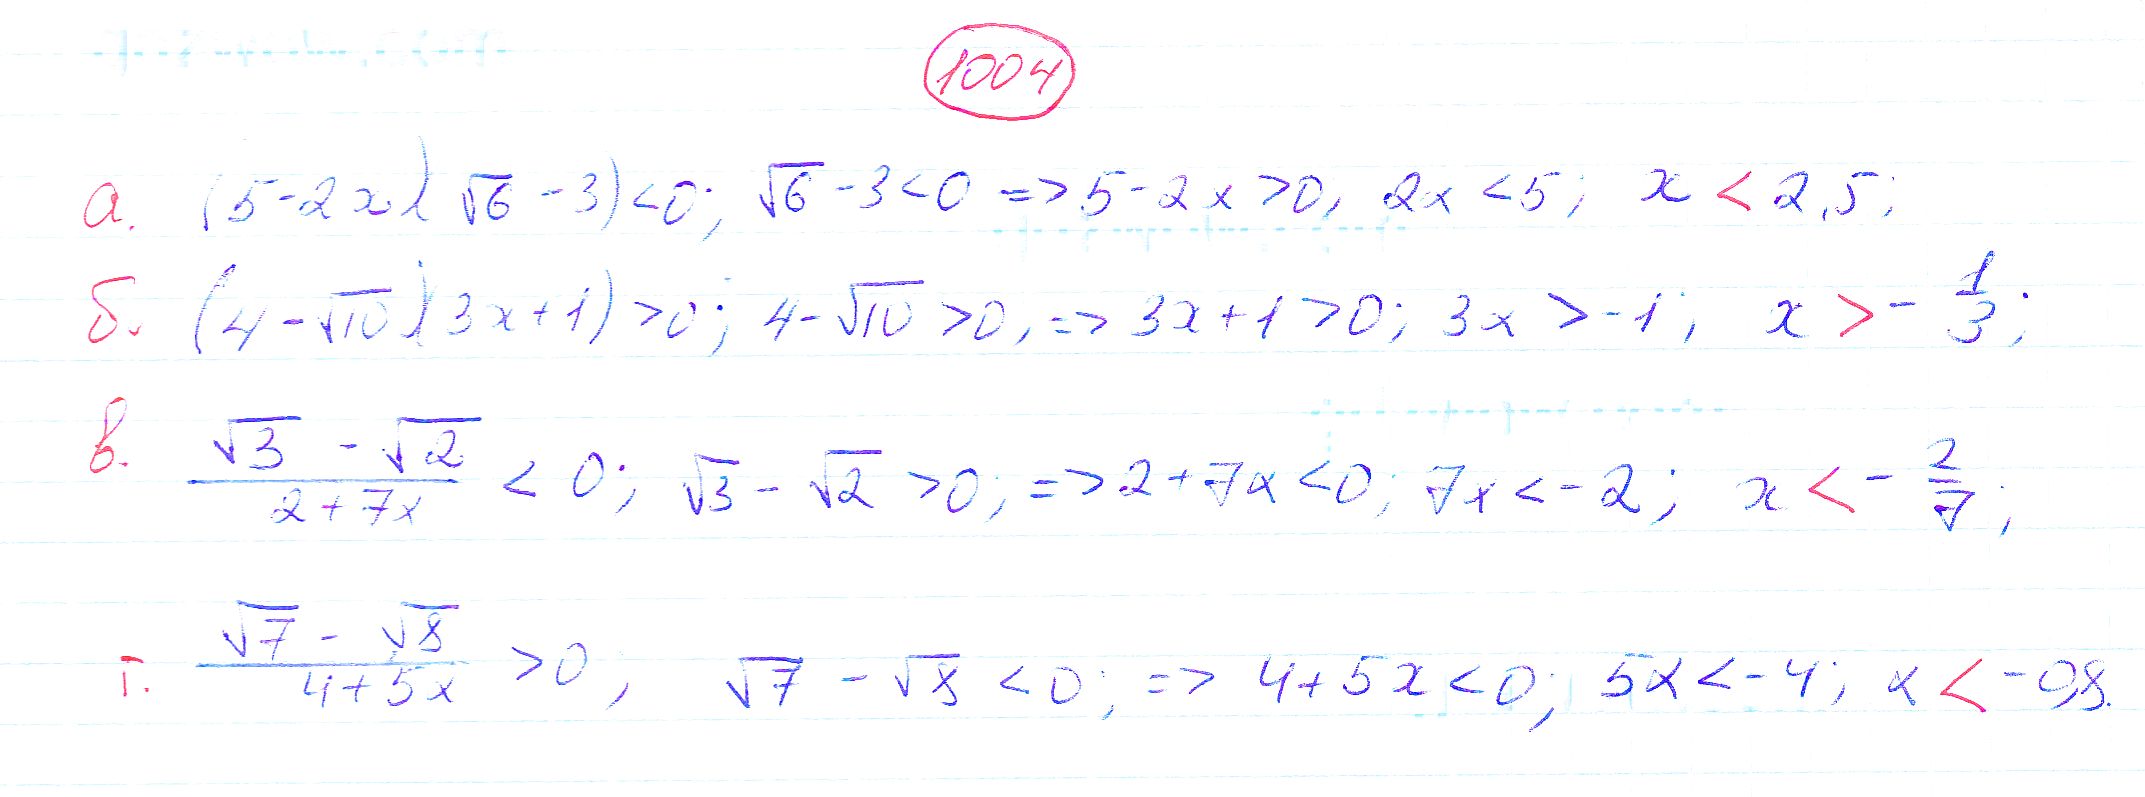 1004
а. (5-2x)(√6-3)<0; √6-3<0 => 5-2x>0, 2x<5; x<2,5;
б. (4-√10)(3x+1)>0; 4-√10>0, => 3x+1>0; 3x>-1; x>-1/3;
в. (√3-√2)/(2+7x)<0; √3-√2>0; => 2+7x<0; 7x<-2; x<-2/7;
г. (√7-√8)/(4+5x)>0; √7-√8<0; => 4+5x<0; 5x<-4; x<-0,8.